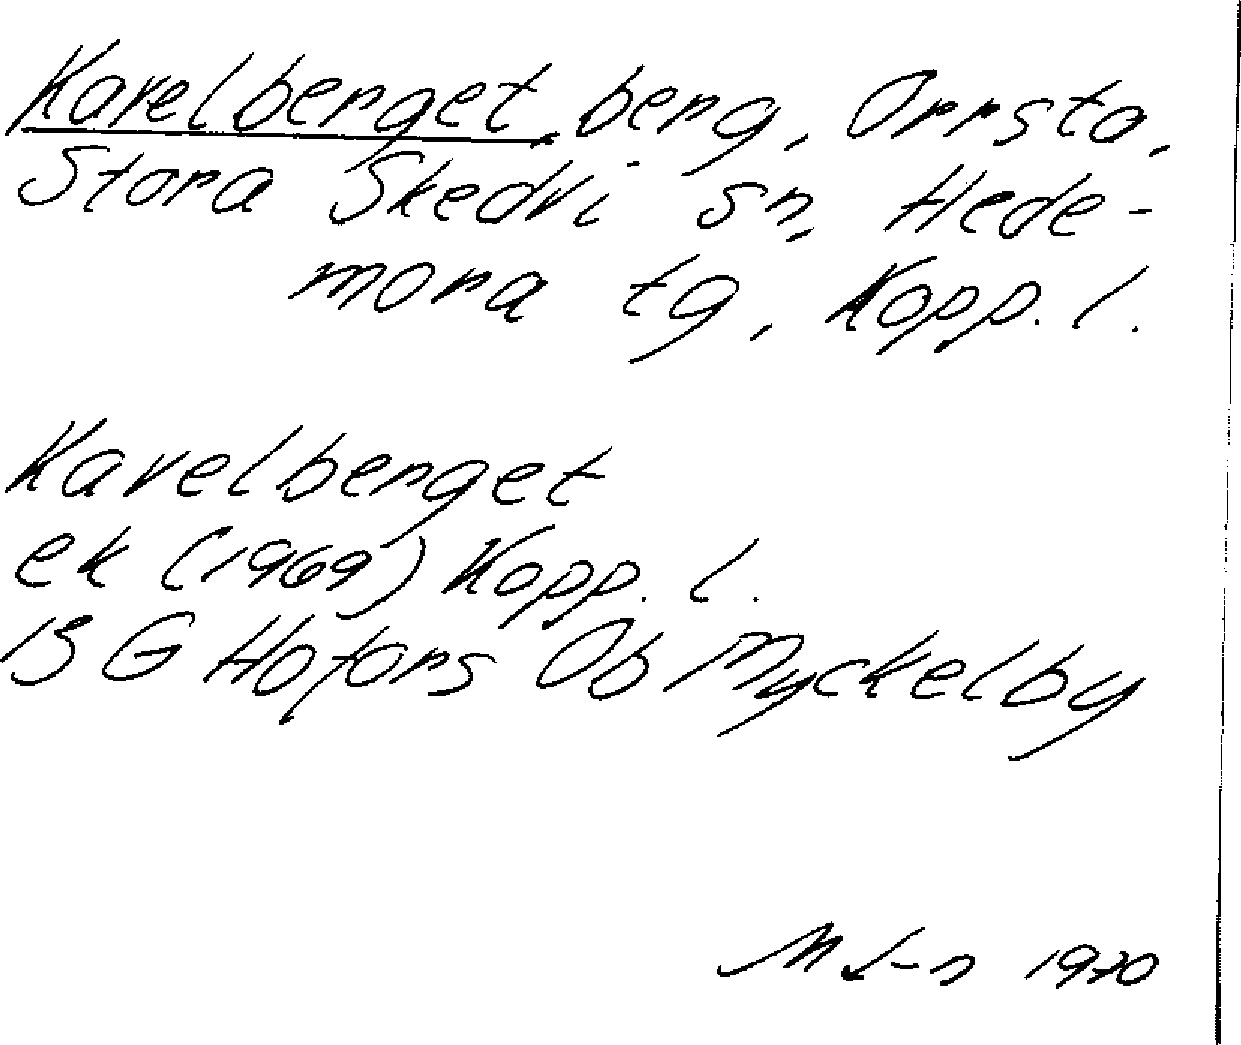 Kavelberget, berg, Orrsta,
Stora Skedvi sn, Hede-
mora tg, Kopp. l.
Kavelberget
ek (1969) Kopp. l.
13 G Hofors Ob Myckelby
1970